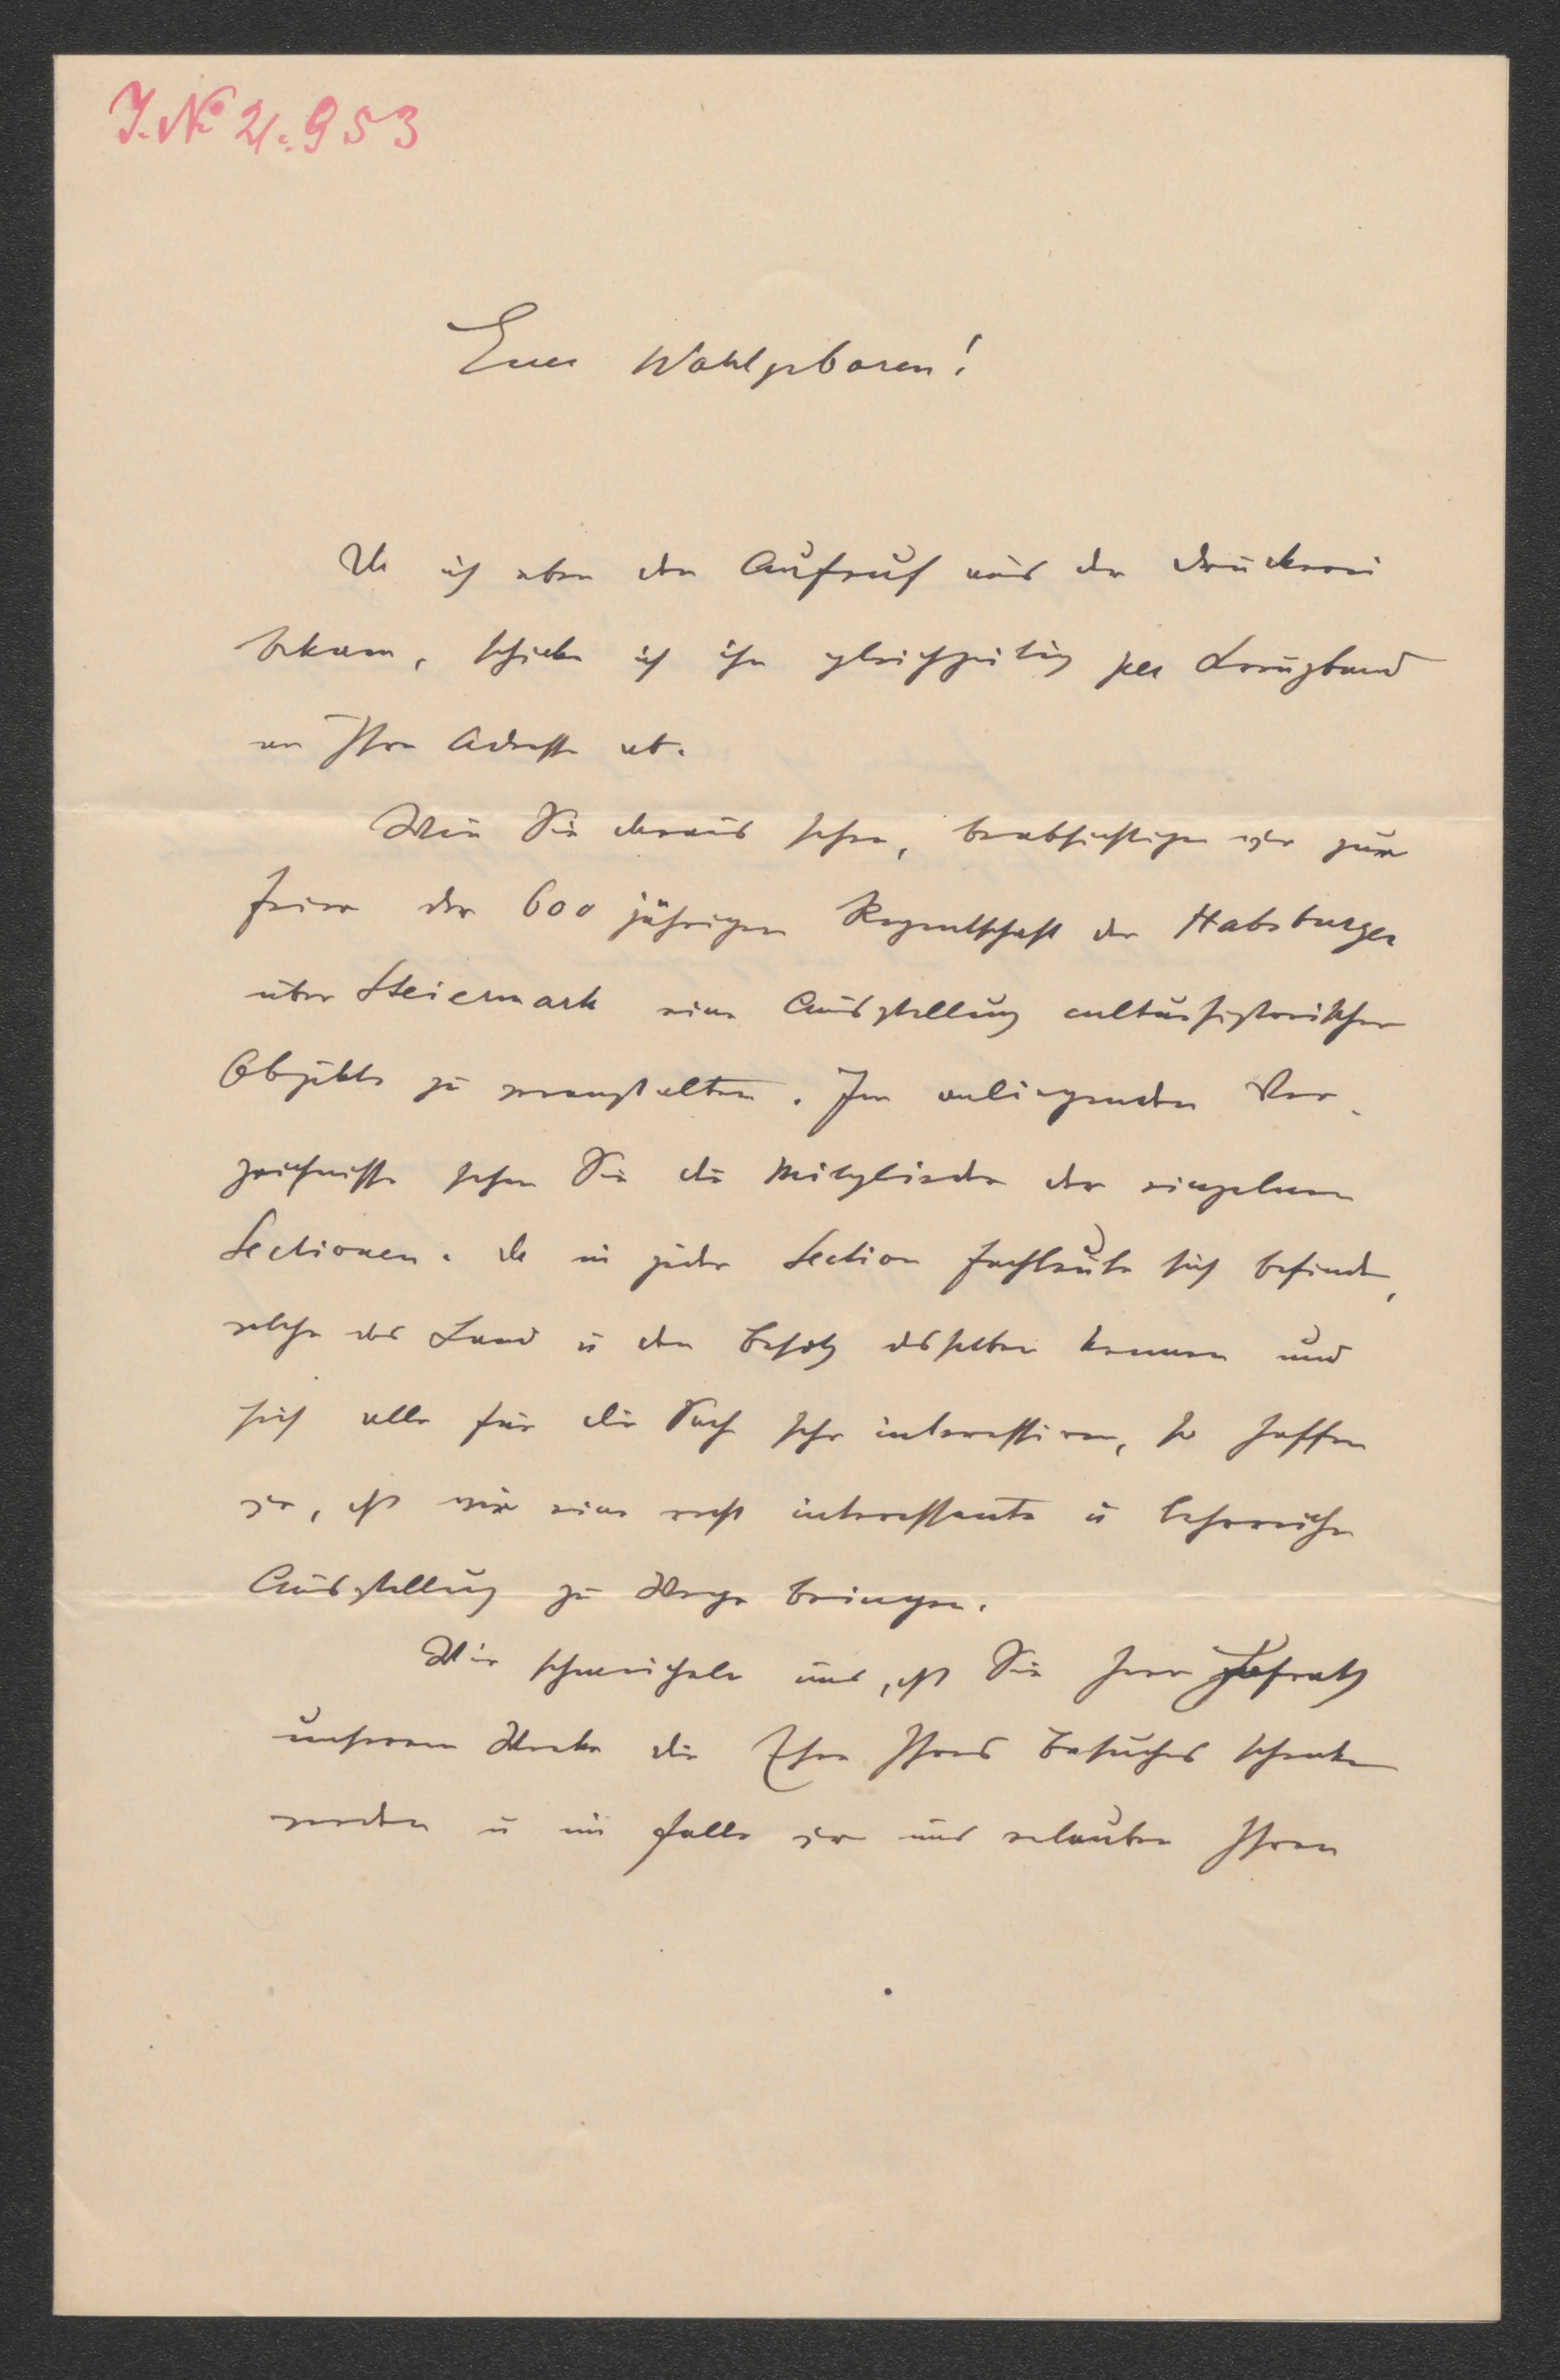 J. No 21.953
Euer Wohlgeboren!
Da ich eben den Aufruf aus der Druckerei
bekam, schicke ich ihn gleichzeitig per Kreuzband
an Ihre Adresse ab.
Wie Sie daraus sehen, beabsichtigen wir zur
Feier der 600 jährigen Regentschaft der Habsburger
über Steiermark eine Ausstellung culturhistorischer
Objekte zu veranstalten. Im anliegenden Ver-
zeichnisse sehen Sie die Mitglieder der einzelnen
Sectionen. Da in jeder Section Fachleute sich befinden,
welche das Land u den Besitz desselben kennen und
sich alle für die Sache sehr interessiren, so hoffen
wir, dß wir eine recht interessante u lehrreiche
Ausstellung zu Wege bringen.
Wir schmeicheln uns, dß Sie Herr Hofrath
unserem Werke die Ehre Ihres Besuches schenken
werden u im Falle wir uns erlauben Ihnen